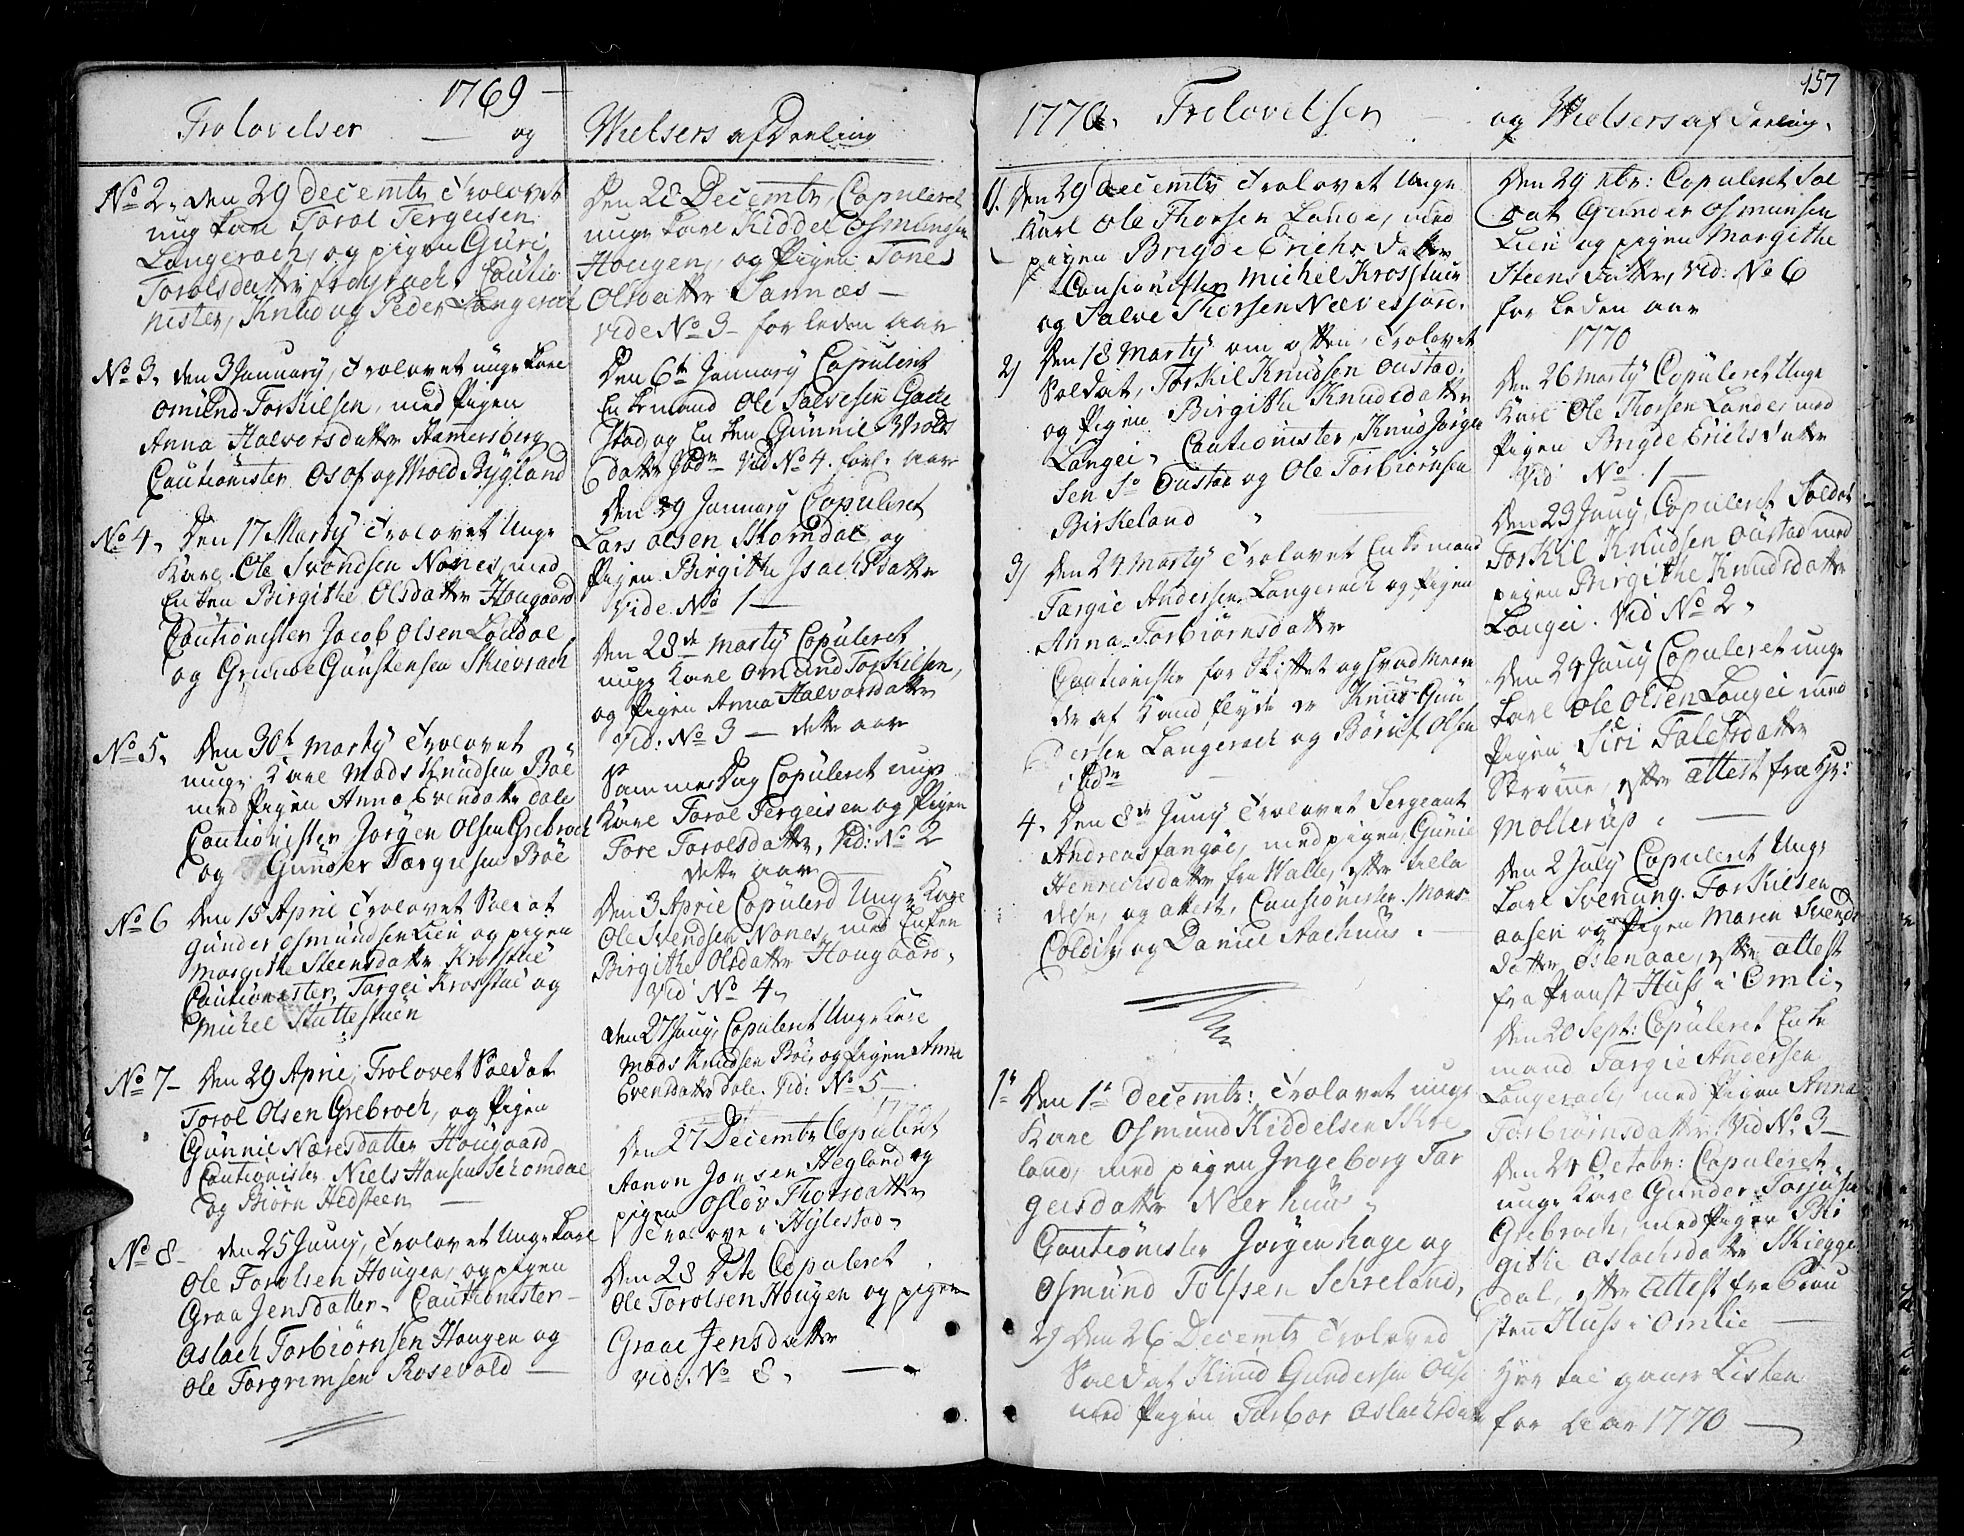 1769
Trolovelser og
No 2. Den 29 Decembr Trolovet
ung Karl Torol Tergeisen
Langerach, og pigen Guri
Torolsdattr Cautio
nister, Knud og Peder Langerach
No 3. den 3 January, Trolovet unge Karl
Osmund Torkilsen, med Pigen
Anna Halvorsdattr Hamersberg
Cautionister Osof og Wold Bygland
No 4. Den 17 Marty Trolovet Unge
Karl Ole Svendsen Nones, med
Enken Birgithe Olsdattr Hougaard
Cautionister Jacob Olsen Loudal
og Gunde Gunstensen Skievrach
No 5. Den 30t Marty Trolovet
unge Karl Mads Knudsen Böe
med Pigen Anna Evendattr Dale
Cautionister Jörgen Olsen Grebroch
og Gunder Targusen Böe
No 6 Den 15 April Trolovet Soldat
Gunder Osmundsen Lien og pigen
Margithe Steensdattr Krosstue
Cautionister, Targei Krosstue og
Michel Stuttestuen
No 7 – Den 29 April, Trolovet Soldat
Torol Olsen Grebroch, og Pigen
Gunnil Næresdatter Hougaard
Cautionister Niels Hansen Schomdal
og Biörn Hedsteen –
No 8 – den 25 Juny, Trolovet Unge Karl
Ole Torolsen Hougen, og pigen
Graa Jensdatter, Cautionister –
Aslach Torbiörnsen Hougen og
Ole Torgrimsen Rosevold –
Wielsers afDeeling
Den 28 Decembr, Copuleret
unge Karl Kiddel Osmundsen
Hougen, og Pigen Tone
Olsdattr Sannæs –
vide No 3 – forleden aar
Den 6t January Copuleret
Enkemand Ole Salvesen Gade
Stad og Enken Gunnil Wolds
datter ibdm Vid No 4. forl. aar
Den 29 January Copuleret
Lars Olsen Skomdal og
Pigen Birgithe Isachsdattr
vide No 1 –
Den 28de Marty Copuleret
unge Karl Osmund Torkilsen,
og Pigen Anna Halvorsdattr
Vid: No 3 – dette aar
Samme Dag Copuleret unge
Karl Torol Tergeisen og Pigen
Tore Torolsdattr, Vid: No 2
dette aar
Den 3 April Copulerd Unge Karl
Ole Svendsen Nones, med Enken
Birgithe Olsdattr Hougaard.
Vid No 4.
den 27 Juny, Copuleret Unge Karl
Mads Knudsen Böe, og Pigen Anna
Evensdattr Dale. Vid: No 5 –
Den 27 Decembr Copuleret
Aanon Jonsen Hegland og
pigen Oslöv Thorsdattr
Trolove i Hylestad –
Den 28 Dito Copuleret
Ole Torolsen Hougen og pigen
Graae Jensdattr
vid. No 8. –
1770. Trolovelser
1. Den 29 Decembr Trolovet Unge
Karl Ole Thorsen Lande, med
pigen Brigde Erichsdattr
Cautionister Michel Krosstuen
og Salve Thorsen Næversjord.
2) Den 18 Marty om aften, Trolovet
Soldat, Torkil Knudsen Oustad.
og Pigen Birgithe Knudsdattr
Langei. Cautionister, Knud Jörgen
sen Oustad og Ole Torbiörnsen
Birkeland
3) Den 24 Marty Trolovet Enkemand
Targie Andersen Langerach og Pigen
Anna Torbiörnsdattr
Cautionister for Skiftet og hvad meere
der af kand flyde er Knud Gun
dersen Langerach og Börulf Olsen
ibdm
4. Den 8de Juny Trolovet Sergeant
Andreas fangöe, med pigen Gunil
Henrichsdattr fra Walle, efter tilla
delse, og attest, Cautionister Mons
Coldily og Daniel Aachuus. –
1t Den 1te Decembr: Trolovet unge
Karl Osmund Kiddelsen Skre
land, med pigen Ingeborg Tar
geisdattr Neerhuus
Cautionister Jörgen hage og
Osmund Tolfsen Schreland.
2) Den 26 Decembr Troloved
Soldat Knud Gundersen
med Pigen Tarbor Aslachsdatr
157
og Wielsers afDeeling.
Den 29 Xbr: Copuleret Sol
dat Gunder Osmunsen
Lien og pigen Margithe
Steensdattr, vid: No 6
forleden aar
1770
Den 26 Marty Copuleret Unge
Karl Ole Thorsen Lande med
Pigen Brigde Erichsdattr
Vid No 1 –
Den 23 Juny, Copuleret Soldat
Torkil Knudsen Oustad med
pigen Birgithe Knudsdattr
Langei. Vid No 2.
Den 24 Juny Copuleret unge
Karl Ole Olsen Langei med
Pigen Siri Talefsdattr
Strömme, efter attest fra Hr:
Mollerup. –
Den 2 July Copuleret Unge
Karl Svenung Torkilsen
aasen og Pigen Maren Svends
dattr Osenaae, efter attest
fra Pronst Huss i Omli.
Den 20 Sept: Copuleret Enke
mand Targie Andersen
Langerach, med Pigen Anna
Torbiörnsdattr Vid No 3 –
Den 24 Octobr: Copuleret
unge Karl Gunder Torjusen
Grebroch, med Pigen Bir
githe Aslachsdattr Skiegge
dal, efter attest fra Prou
sten Huss i Omlie –
Her til gaaer Listen
for Aar 1770 –